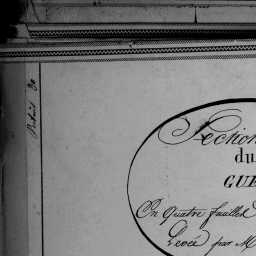 Section
du
GUE
En quatre feuilles
Levée par M